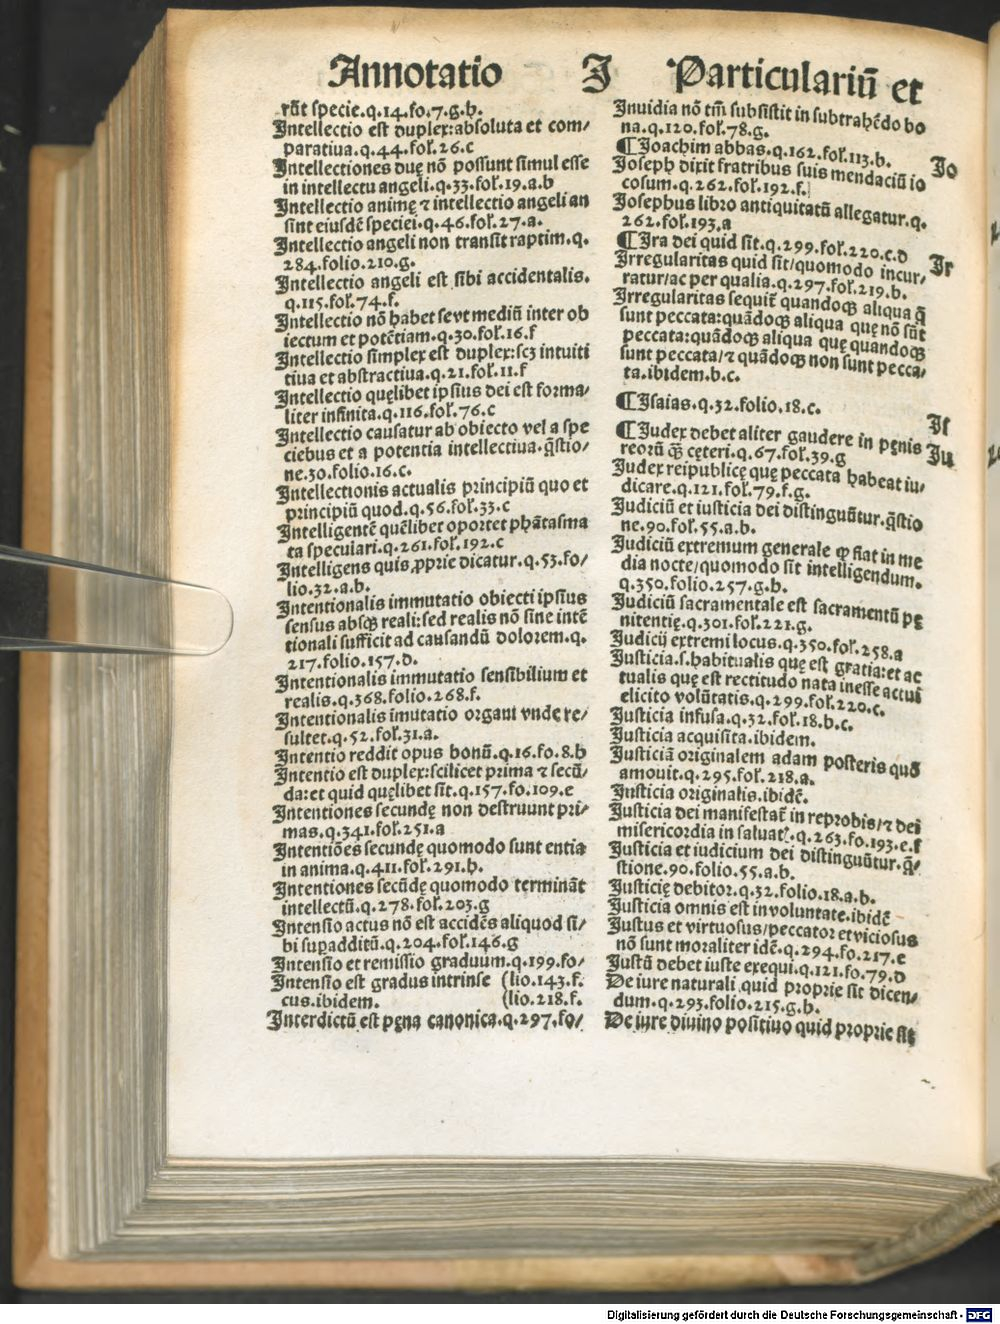 Annotatio J Particulariū et
rūt specie.q.14.fo.7.g.h.
Intellectio est duplex:absoluta et com/
paratiua.q.44.fol.26.c
Intellectiones duę nō possunt simul esse
in intellectu angeli.q.33.fol.19.a.b
Intellectio animę ⁊ intellectio angeli an
sint eiusdē speciei.q.46.fol.27.a.
Intellectio angeli non transit raptim.q.
284.folio.210.g.
Intellectio angeli est sibi accidentalis.
q.115.fol.74.f.
Intellectio nō habet se vt mediū inter ob
iectum et potētiam.q.30.fol.16.f
Intellectio simplex est duplex:scꝫ intuiti
tiua et abstractiua.q.21.fol.11.f
Intellectio quęlibet ipsius dei est forma/
liter infinita.q.116.fol.76.c
Intellectio causatur ab obiecto vel a spe
ciebus et a potentia intellectiua.q̄stio/
ne.30.folio.16.c.
Intellectionis actualis principiū quo et
principiū quod.q.56.fol.33.c
Intelligentē quēlibet oportet phātasma
ta speculari.q.261.fol.192.c
Intelligens quis ꝓprie dicatur.q.53.fo/
lio.32.a.b.
Intentionalis immutatio obiecti ipsius
sensus absqꝫ reali:sed realis nō sine intē
tionali sufficit ad causandū dolorem.q.
217.folio.157.d.
Intentionalis immutatio sensibilium et
realis.q.368.folio.268.f.
Intentionalis imutatio organi vnde re/
sultet.q.52.fol.31.a.
Intentio reddit opus bonū.q.16.fo.8.b
Intentio est duplex:scilicet prima ⁊ secū/
da:et quid quęlibet sit.q.157.fo.109.e
Intentiones secundę non destruunt pri/
mas.q.341.fol.251.a
Intentiōes secundę quomodo sunt entia
in anima.q.411.fol.291.h.
Intentiones secūdę quomodo termināt
intellectū.q.278.fol.203.g
Intensio actus nō est accidēs aliquod si/
bi supadditū.q.204.fol.146.g
Intensio et remissio graduum.q.199.fo/
Intensio est gradus intrinse (lio.143.f.
cus.ibidem. (lio.218.f.
Interdictū est pęna canonica.q.297.fo/
Inuidia nō tm̄ subsistit in subtrahēdo bo
na.q.120.fol.78.g.
¶Joachim abbas.q.162.fol.113.b. Jo
Joseph dixit fratribus suis mendaciū io
cosum.q.262.fol.192.f.
Josephus libro antiquitatū allegatur.q.
262.fol.193.a
¶Ira dei quid sit.q.299.fol.220.c.d Ir
Irregularitas quid sit/quomodo incur/
ratur/ac per qualia.q.297.fol.219.b.
Irregularitas sequit̄ quandoqꝫ aliqua q̄
sunt peccata:quādoqꝫ aliqua quę nō sūt
peccata:quādoqꝫ aliqua quę quandoqꝫ
sunt peccata/⁊ quādoqꝫ non sunt pecca/
ta.ibidem.b.c.
¶Isaias.q.32.folio.18.c. Is
¶Iudex debet aliter gaudere in pęnis Ju
reorū qꝫ̄ cęteri.q.67.fol.39.g
Iudex reipublicę quę peccata habeat iu/
dicare.q.121.fol.79.f.g.
Iudiciū et iusticia dei distinguūtur.q̄stio
ne.90.fol.55.a.b.
Iudiciū extremum generale ꝙ fiat in me
dia nocte/quomodo sit intelligendum.
q.350.folio.257.g.h.
Iudiciū sacramentale est sacramentū pę
nitentię.q.301.fol.221.g.
Iudicij extremi locus.q.350.fol.258.a
Iusticia.s.habitualis quę est gratia:et ac
tualis quę est rectitudo nata inesse actui
elicito volūtatis.q.299.fol.220.c.
Iusticia infusa.q.32.fol.18.b.c.
Iusticia acquisita.ibidem.
Iusticiā originalem adam posteris quō
amouit.q.295.fol.218.a.
Iusticia originalis.ibidē.
Iusticia dei manifestat̄ in reprobis/⁊ dei
misericordia in saluat?.q.263.fo.193.e.f
Iusticia et iudicium dei distinguūtur.q̄/
stione.90.folio.55.a.b.
Iusticię debitor.q.32.folio.18.a.b.
Iusticia omnis est in voluntate.ibidē
Iustus et virtuosus/peccator et viciosus
nō sunt moraliter idē.q.294.fo.217.e
Iustū debet iuste exequi.q.121.fo.79.d
De iure naturali quid proprie sit dicen/
dum.q.293.folio.215.g.h.
De iure diuino positiuo quid proprie sit
Digitalisierung gefördert durch die Deutsche Forschungsgemeinschaft - DFG